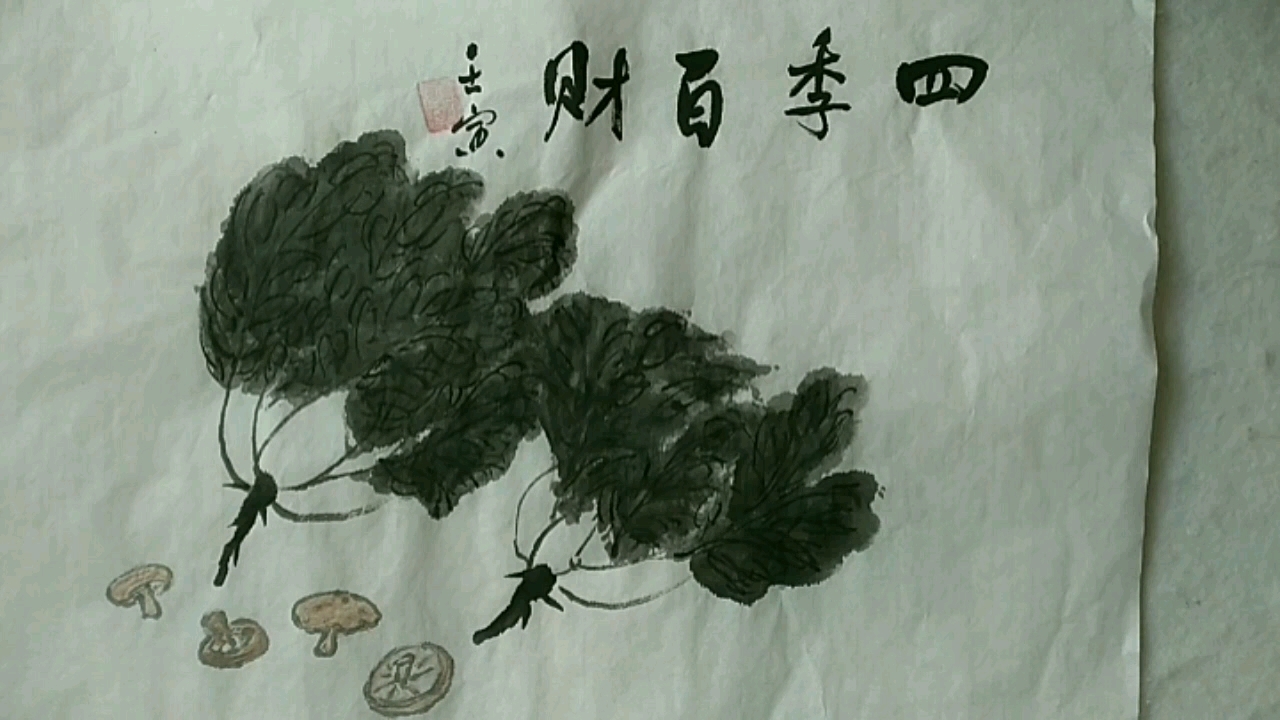 四季百财
壬寅